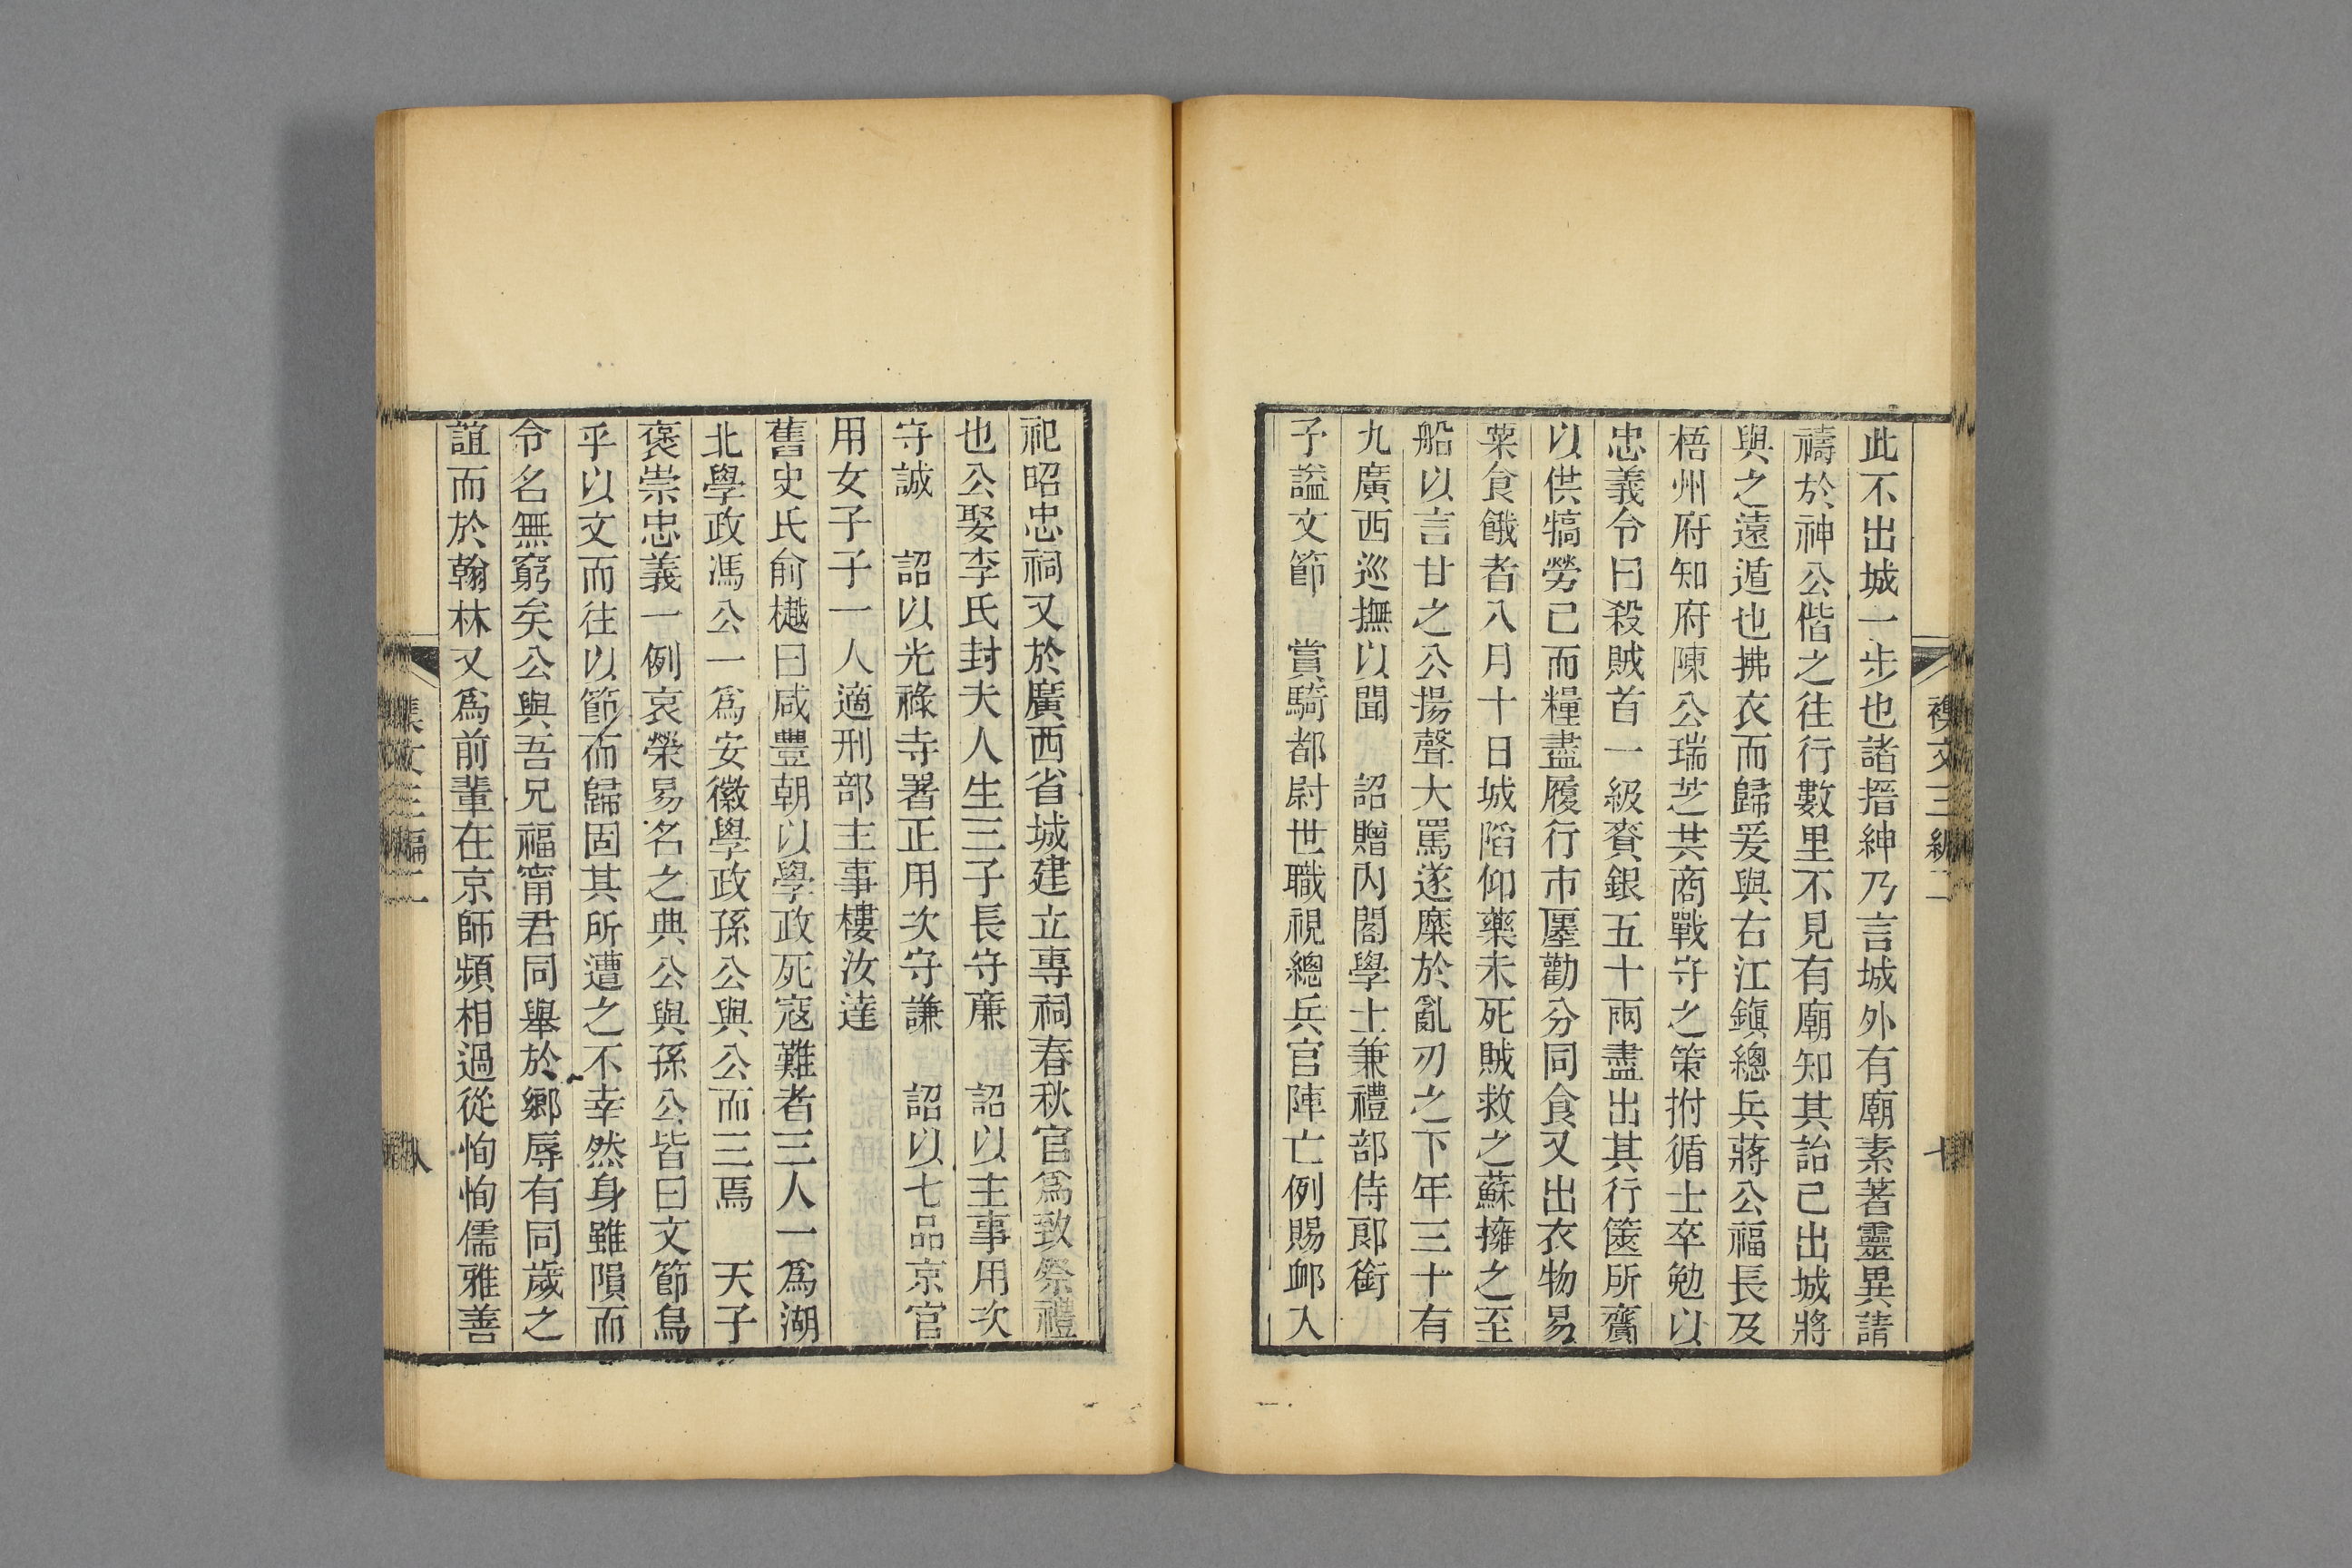 此不出城一步也諸搢紳乃言城外有廟素著靈異請
禱於神公偕之往行數里不見有廟知其詒己出城將
與之遠遁也拂衣而歸爰與右江鎭總兵蔣公福長及
梧州府知府陳公瑞芝共商戰守之策拊循士卒勉以
忠義令曰殺賊首一級賚銀五十兩盡出其行篋所齎
以供犒勞已而糧盡履行市廛勸分同食又出衣物易
粟食餓者八月十日城陷仰藥未死賊救之蘇擁之至
船以言甘之公揚聲大罵遂糜於亂刃之下年三十有
九廣西巡撫以聞 詔贈內閣學士兼禮部侍郞銜
予謚文節 賞騎都尉世職視總兵官陣亡例賜卹入
祀昭忠祠又於廣西省城建立專祠春秋官爲致祭禮
也公娶李氏封夫人生三子長守廉 詔以主事用次
守誠 詔以光祿寺署正用次守謙 詔以七品京官
用女子子一人適刑部主事樓汝達
舊史氏俞樾曰咸豐朝以學政死寇難者三人一爲湖
北學政馮公一爲安徽學政孫公與公而三焉 天子
褒崇忠義一例哀榮易名之典公與孫公皆曰文節烏
乎以文而往以節而歸固其所遭之不幸然身雖隕而
令名無窮矣公與吾兄福甯君同舉於鄉辱有同歲之
誼而於翰林又爲前輩在京師頻相過從恂恂儒雅善